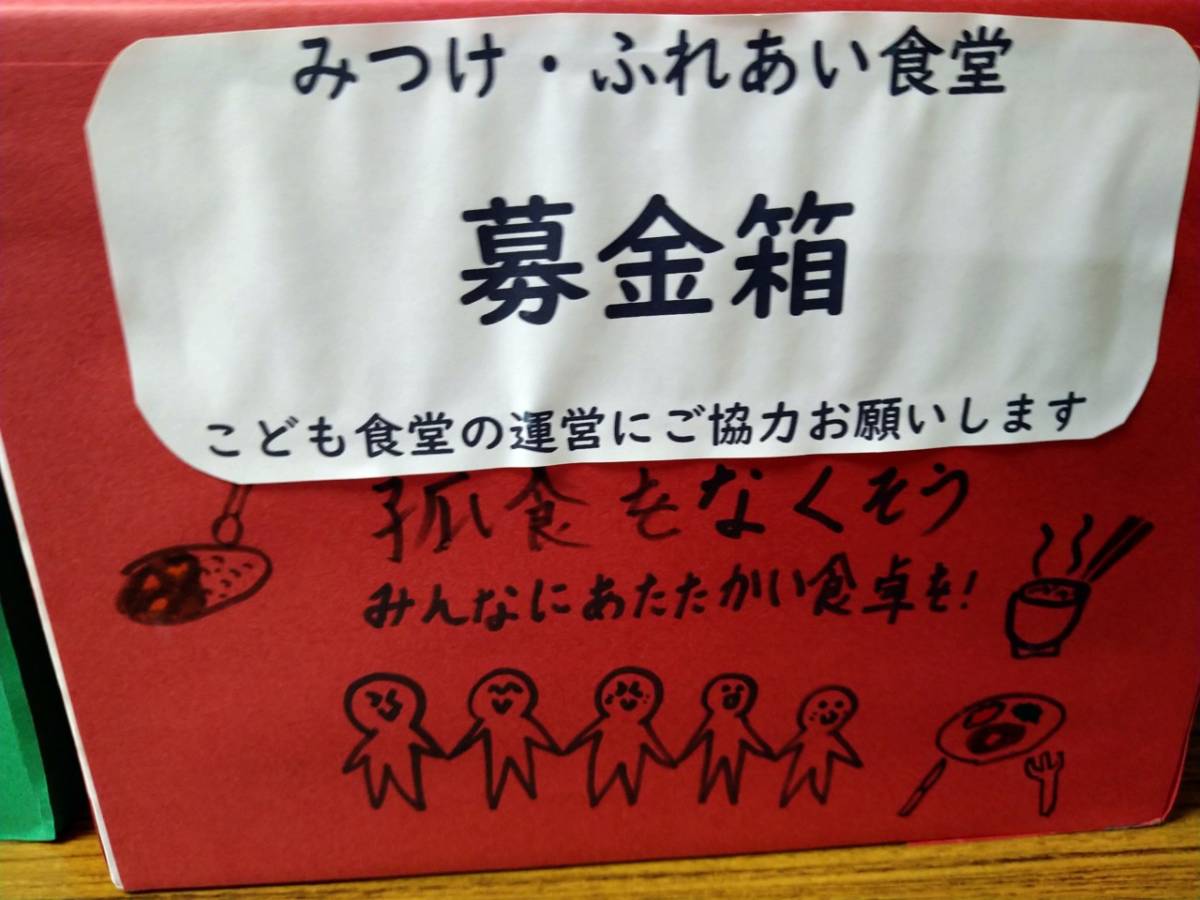 みつけ・ふれあい食堂
募金箱
こども食堂の運営にご協力お願いします
孤食をなくそう
みんなにあたたかい食卓を!